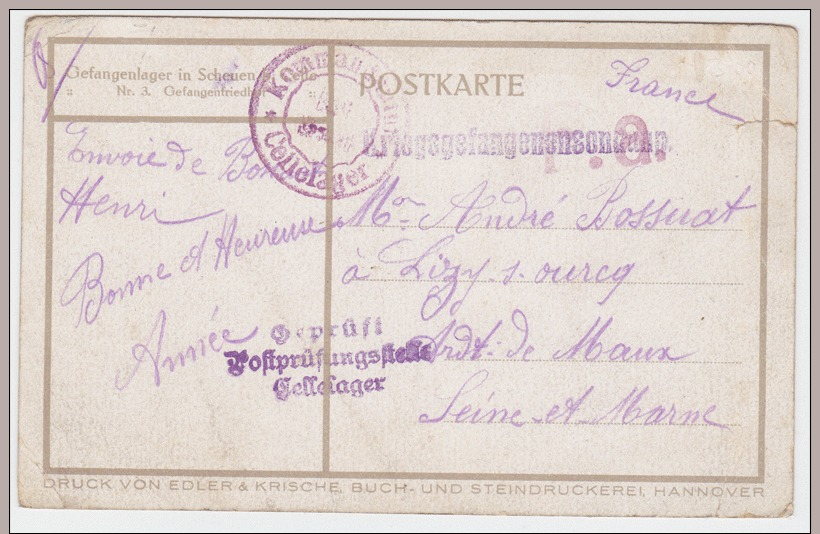 Gefangenlager in Scheuen
" Nr. 3. Gefangenfriedhof
POSTKARTE
France
Celle lager
Kriegsgefangenensendung.
Envoie de
Henri
Bonne et Heureuse
Année
Mon André Bossuat
à Lizy-s-ourcq
Ardt. de Maux
Seine-et-Marne
Geprüft
Postprüfungsstelle
Cellelager
DRUCK VON EDLER & KRISCHE, BUCH- UND STEINDRUCKEREI, HANNOVER